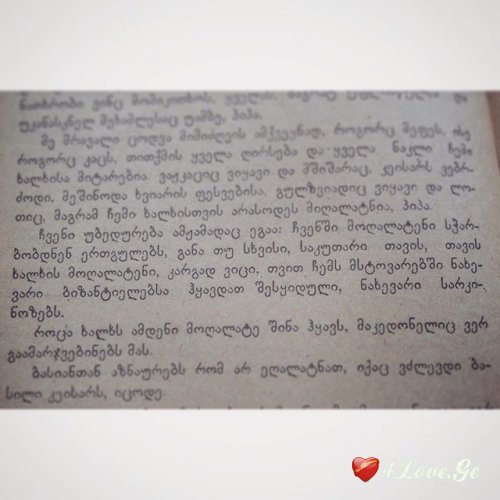 უკანასკნელ მეხამლესაც უამბე, პიპა.
მე მრავალი ცოდვა მიმიძღვის ამქვეყნად, როგორც მეფეს, ისე
როგორც კაცს, თითქმის ყველა ღირსება და ყველა ნაკლი ჩემი
ხალხისა მიტარებია. ვაჟკაციც ვიყავი და მშიშარაც, კეისარს ვებრ-
ძოდი, მეშინოდა ხვიარის ფესვებისა, გულზვიადიც ვიყავი და ლო-
თიც, მაგრამ ჩემი ხალხისთვის არასოდეს მიღალატნია, პიპა.
ჩვენი უბედურება ამჟამადაც ეგაა: ჩვენში მოღალატენი სჭარ-
ბობდნენ ერთგულებს, განა თუ სხვისი, საკუთარი თავის, თავის
ხალხის მოღალატენი, კარგად ვიცი, თვით ჩემს მსტოვარებში ნახე-
ვარი ბიზანტიელებსა ჰყავდათ შესყიდული, ნახევარი სარკი-
ნოზებს.
როცა ხალხს ამდენი მოღალატე შინა ჰყავს, მაკედონელიც ვერ
გაამარჯვებინებს მას.
ბასიანთან აზნაურებს რომ არ ეღალატნათ, იქაც ვძლევდი ბა-
სილი კეისარს, იცოდე.
4Love.Ge